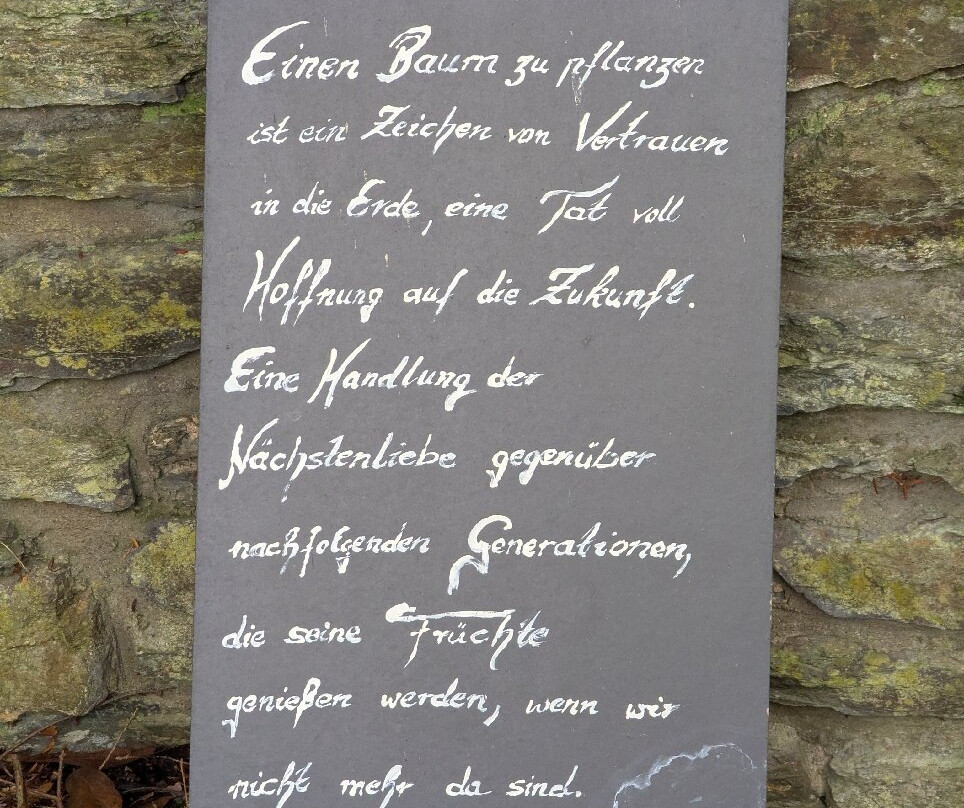 Einen Baum zu pflanzen
ist ein Zeichen von Vertrauen
in die Erde, eine Tat voll
Hoffnung auf die Zukunft.
Eine Handlung der
Nächstenliebe gegenüber
nachfolgenden Generationen,
die seine Früchte
genießen werden, wenn wir
nicht mehr da sind.